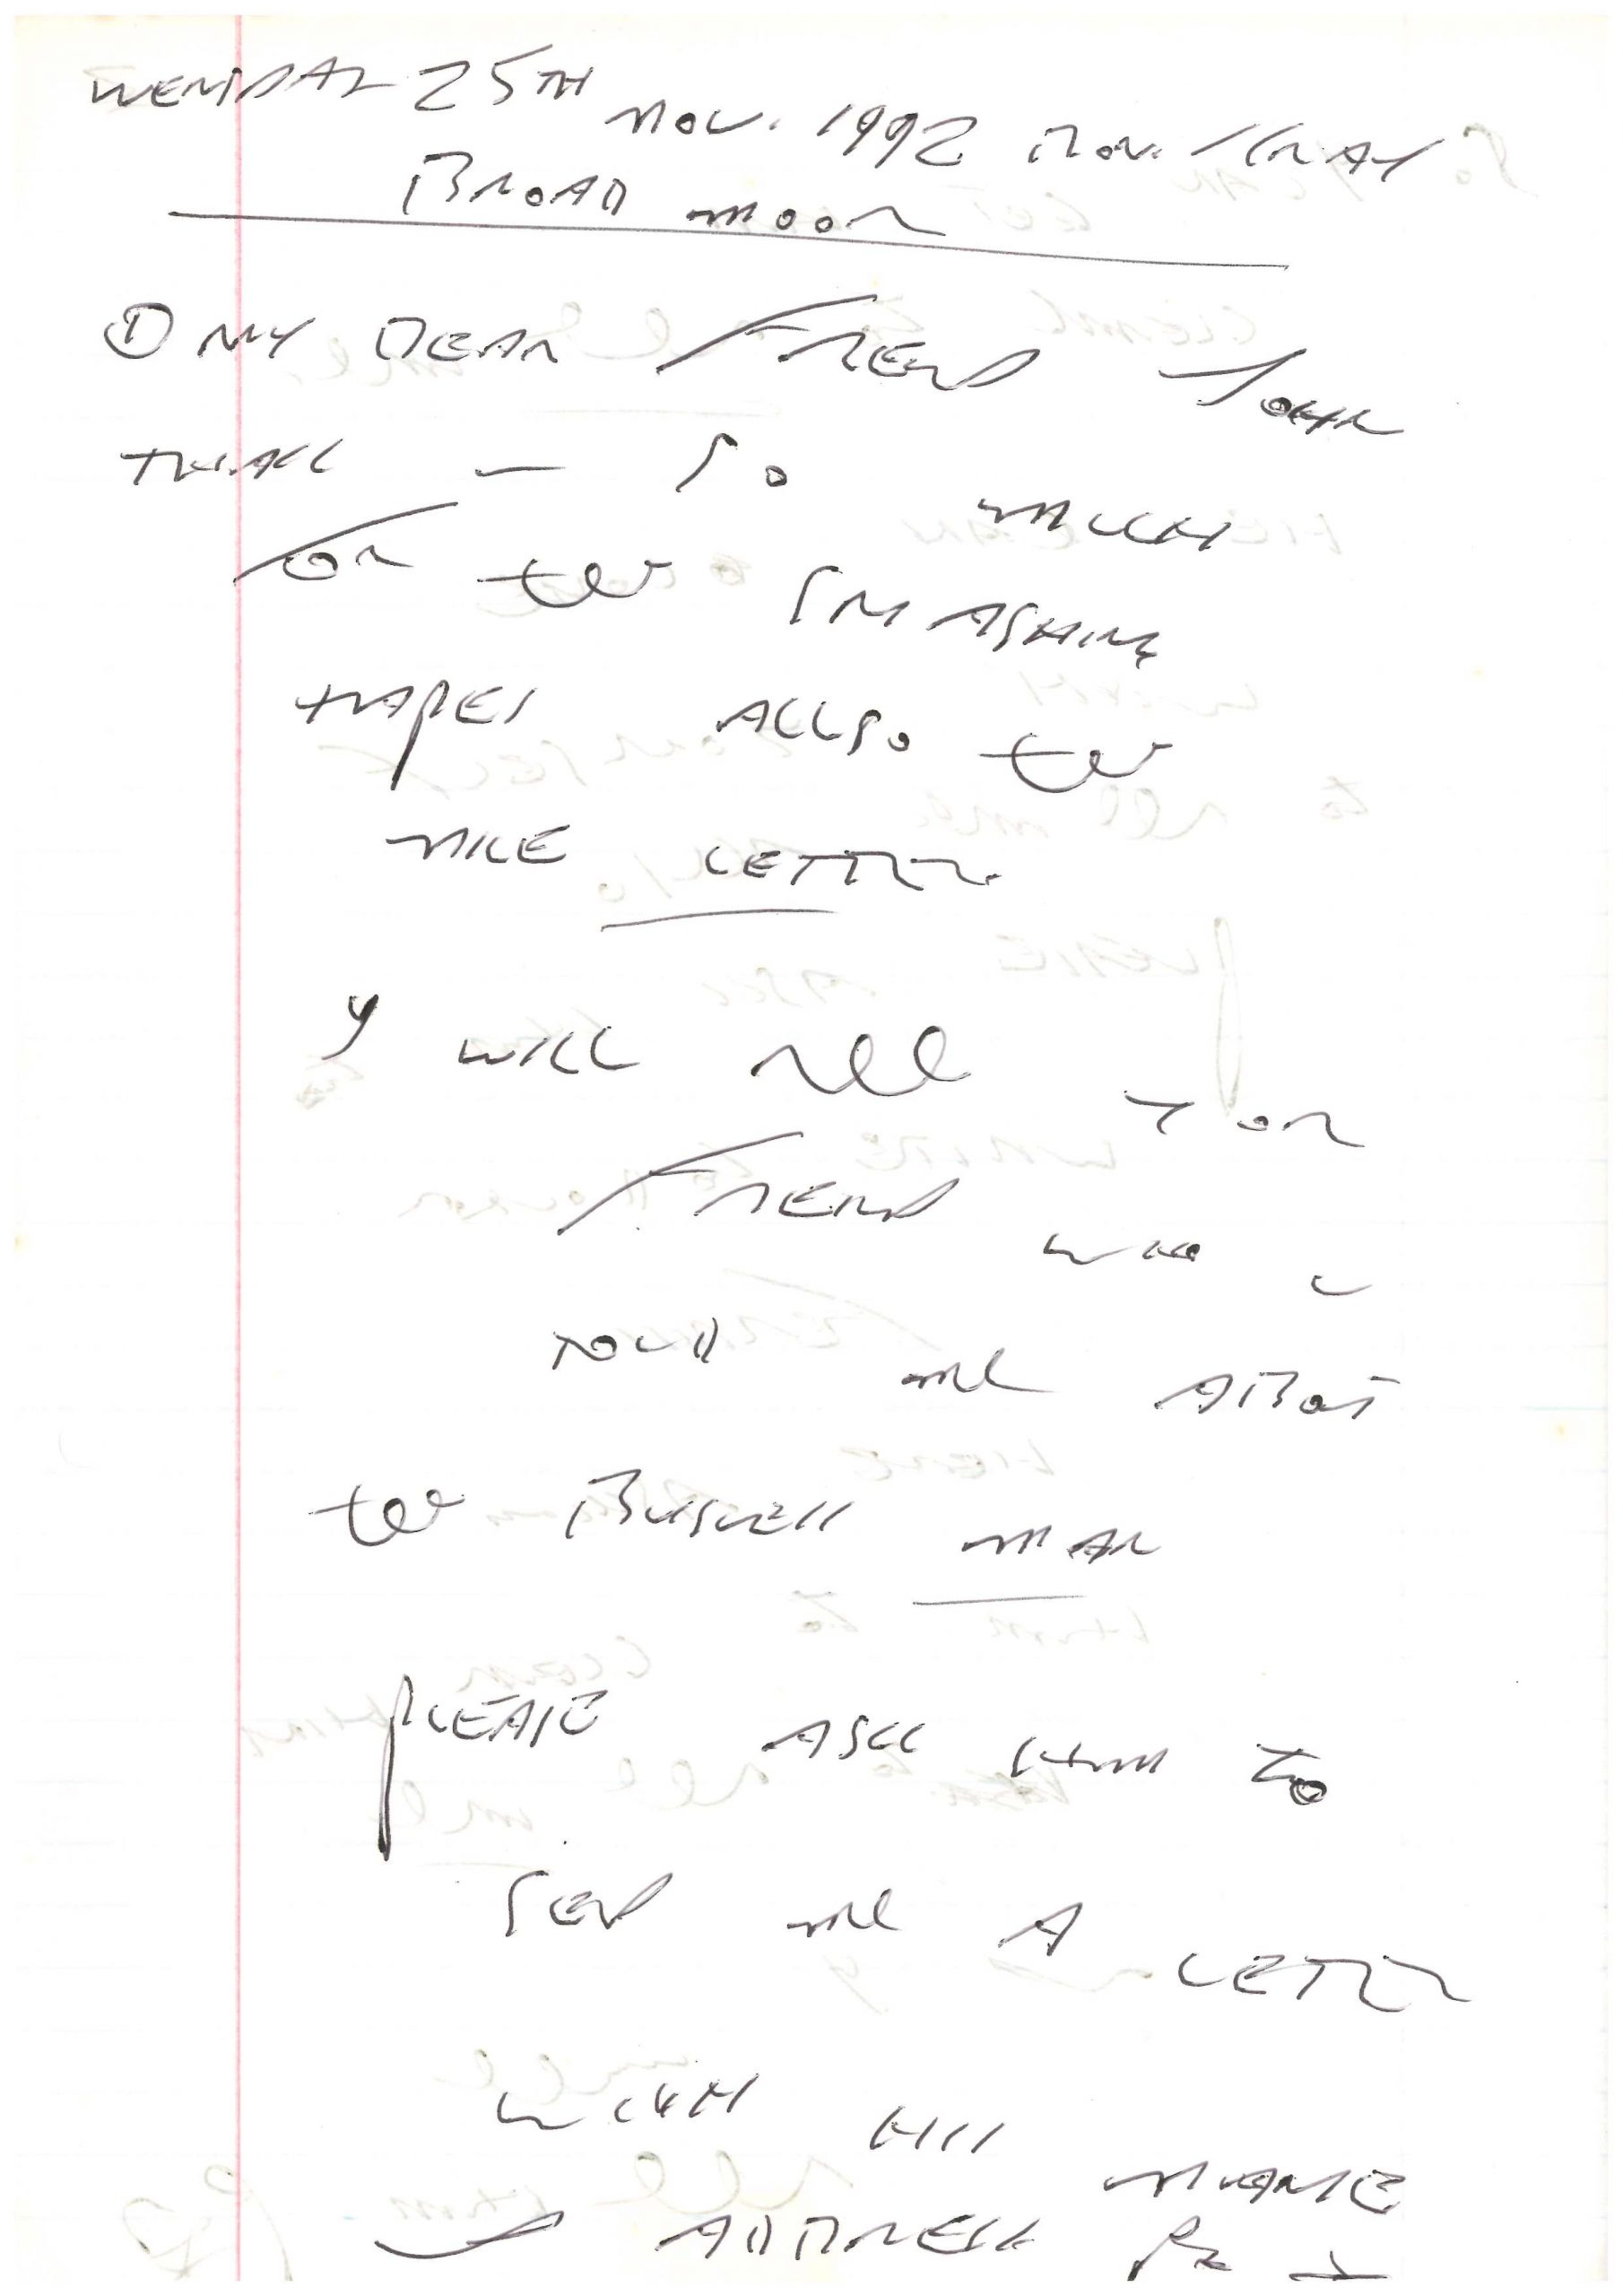 WENSDAY 25TH NOV. 1992 RON. KRAY
BROADMOOR
① MY DEAR FREND JOHN
THAKK — SO MUCH
FOR the SMASHING
TAPES ALLSO the
NICE LETTER.
I WILL see YOR
FREND WHO
TOLD me ABOT
the BUSNESS MAN
PLEASE ASKK HIM to
SEND me A LETTER
WITH HIS NAME
ADDRESS